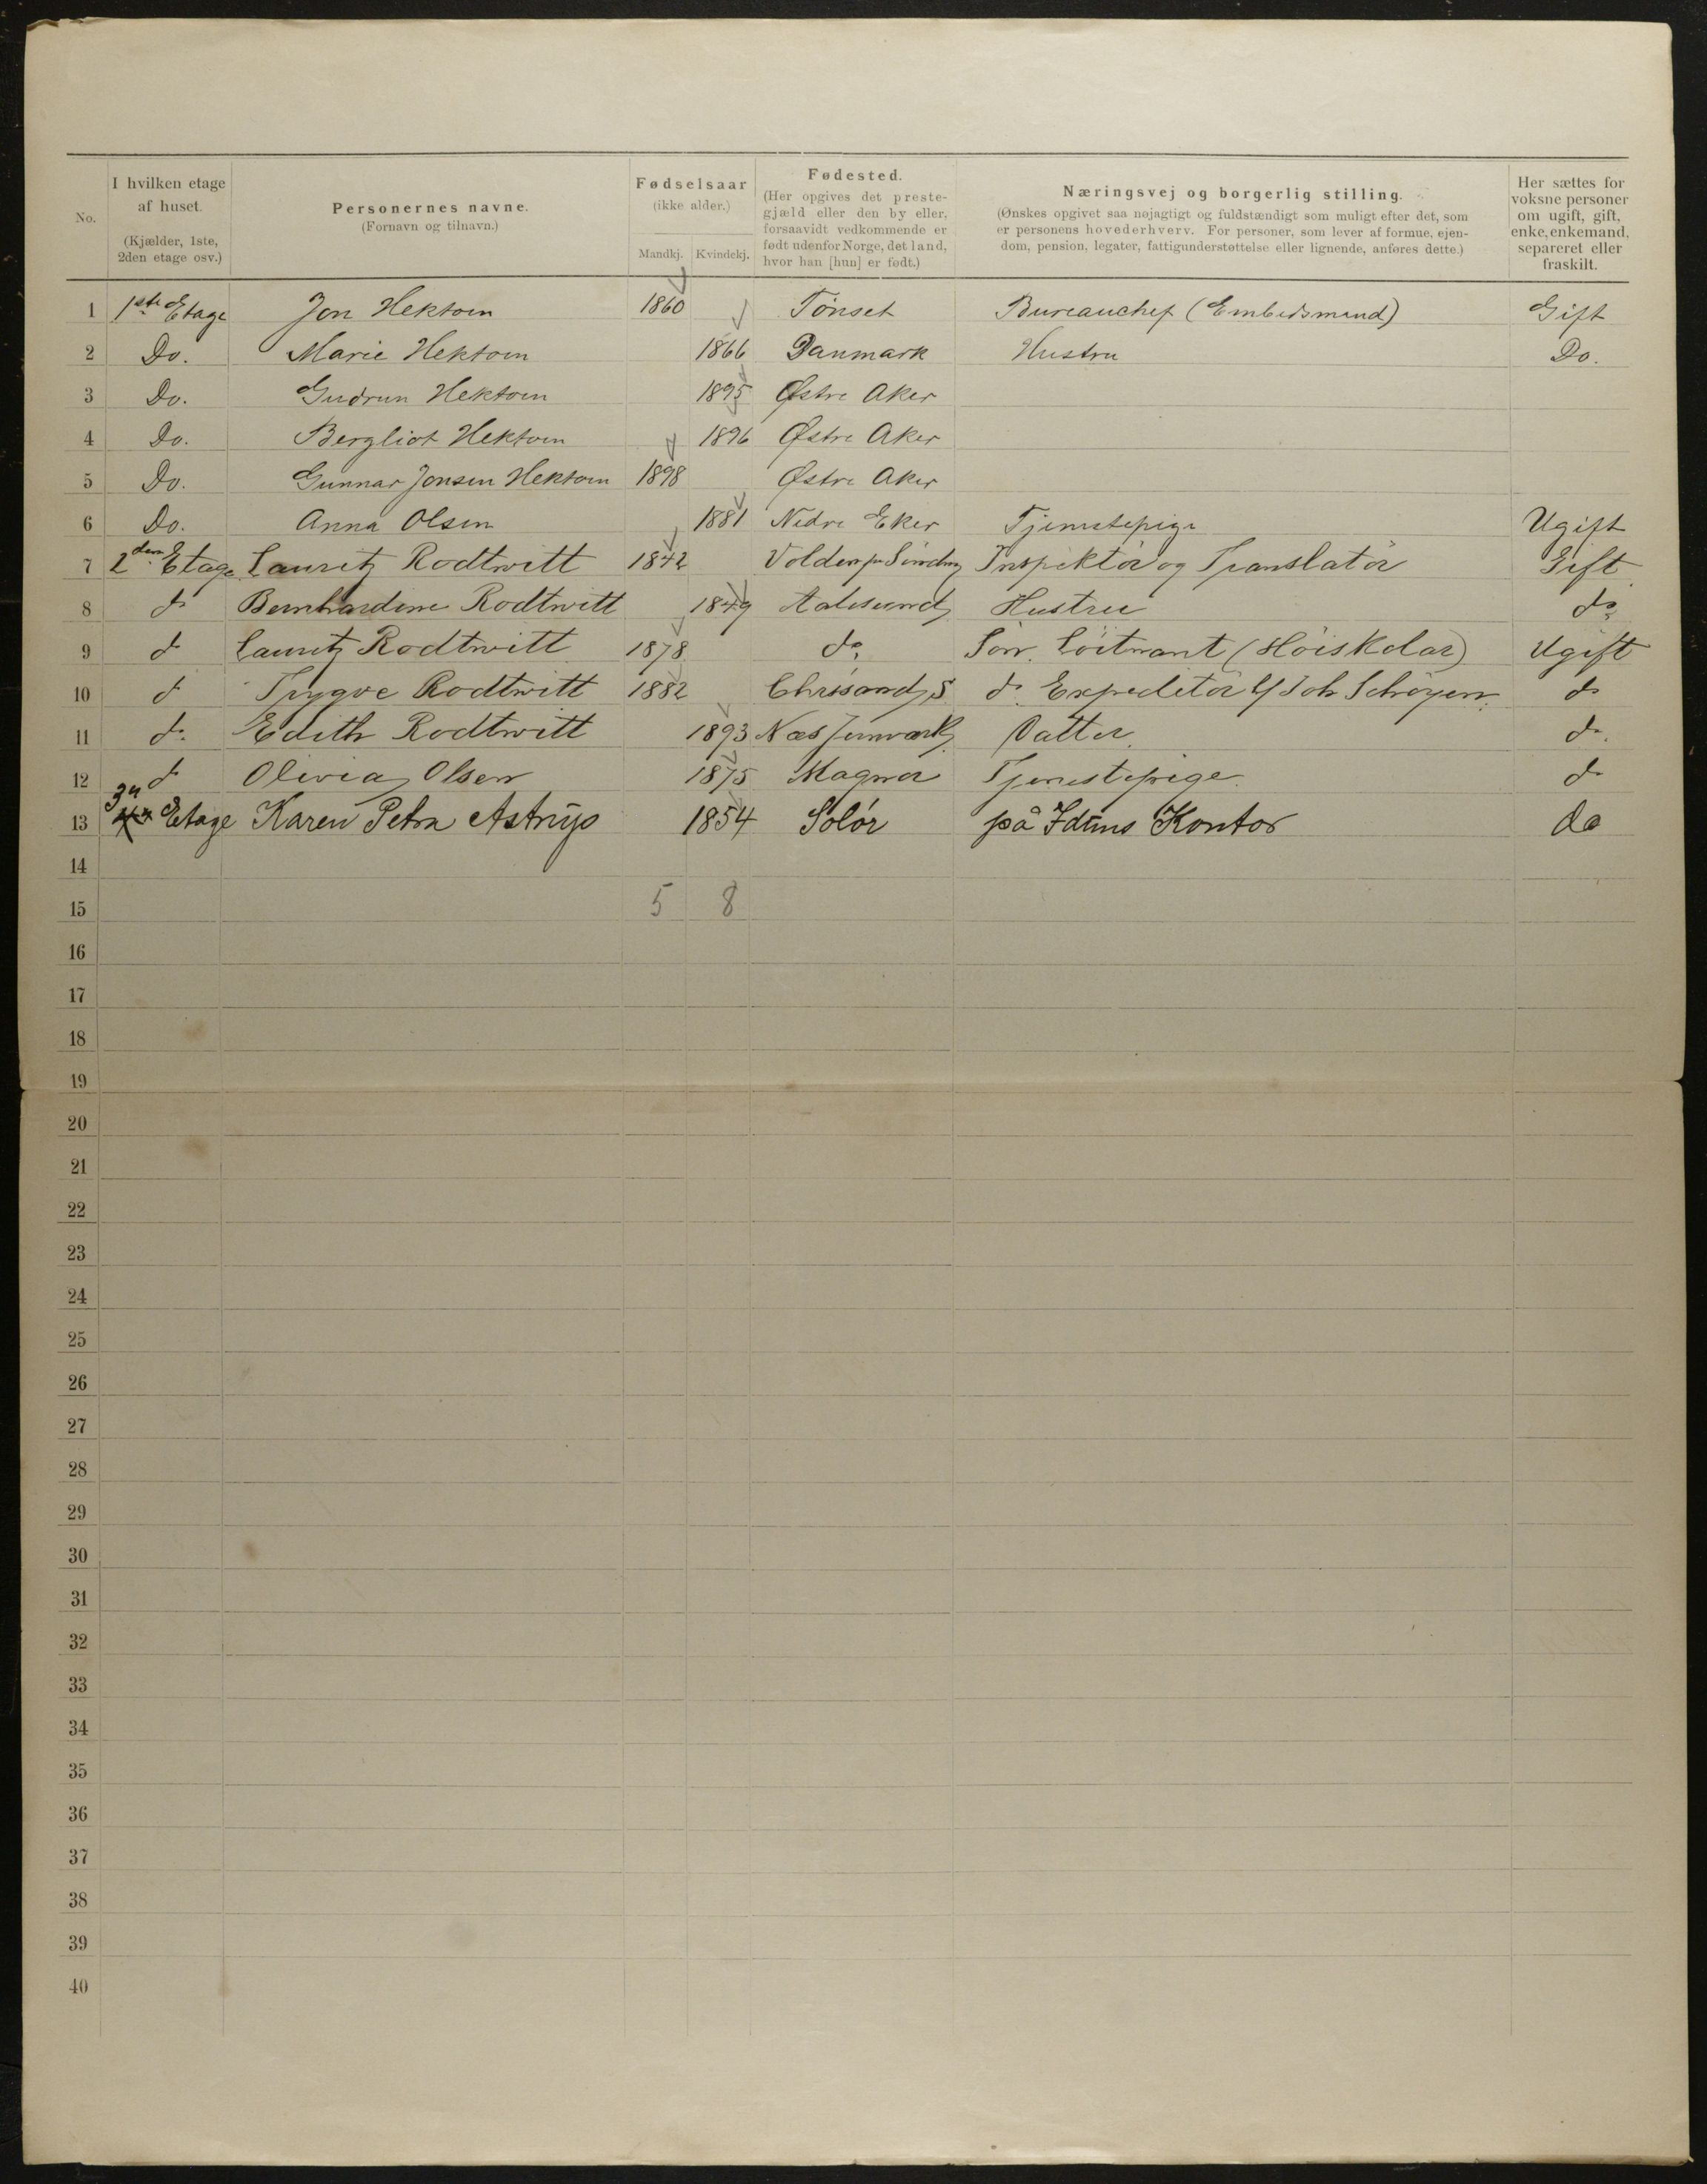 No.
I hvilken etage af huset. (Kjælder, 1ste, 2den etage osv.)
Personernes navne. (Fornavn og tilnavn.)
Fødselsaar (ikke alder.) Mandkj. Kvindekj.
Fødested. (Her opgives det prestegjæld eller den by eller, forsaavidt vedkommende er født udenfor Norge, det land, hvor han [hun] er født.)
Næringsvej og borgerlig stilling. (Ønskes opgivet saa nøjagtigt og fuldstændigt som muligt efter det, som er personens hovederhverv. For personer, som lever af formue, ejendom, pension, legater, fattigunderstøttelse eller lignende, anføres dette.)
Her sættes for voksne personer om ugift, gift, enke, enkemand, separeret eller fraskilt.
1 1ste Etage Jon Hektoen 1860 Tönset Bureauchef (Embedsmand) Gift
2 Do. Marie Hektoen 1866 Danmark Hustru Do.
3 Do. Gudrun Hektoen 1895 Østre Aker
4 Do. Bergliot Hektoen 1896 Østre Aker
5 Do. Gunnar Jonsen Hektoen 1898 Østre Aker
6 Do. Anna Olsen 1881 Nedre Eker Tjenestepige Ugift
7 2den Etage Lauritz Rodtwitt 1842 Volden Inspektör og Translatör Gift
8 do Bernhardine Rodtwitt 1849 Aalesund Hustru do
9 do Lauritz Rodtwitt 1878 do Sön. Löitnant (Höiskolar) Ugift
10 do Trygve Rodtwitt 1882 Chrisand S do Expeditör Joh Schröyen do
11 do Edith Rodtwitt 1893 Næs Jernværk Datter do
12 do Olivia Olsen 1875 Magnor Tjenestepige. do
13 3die Etage Karen Petra Astrup 1854 Solör på Iduns Kontor do
14
15 5 8
16
17
18
19
20
21
22
23
24
25
26
27
28
29
30
31
32
33
34
35
36
37
38
39
40